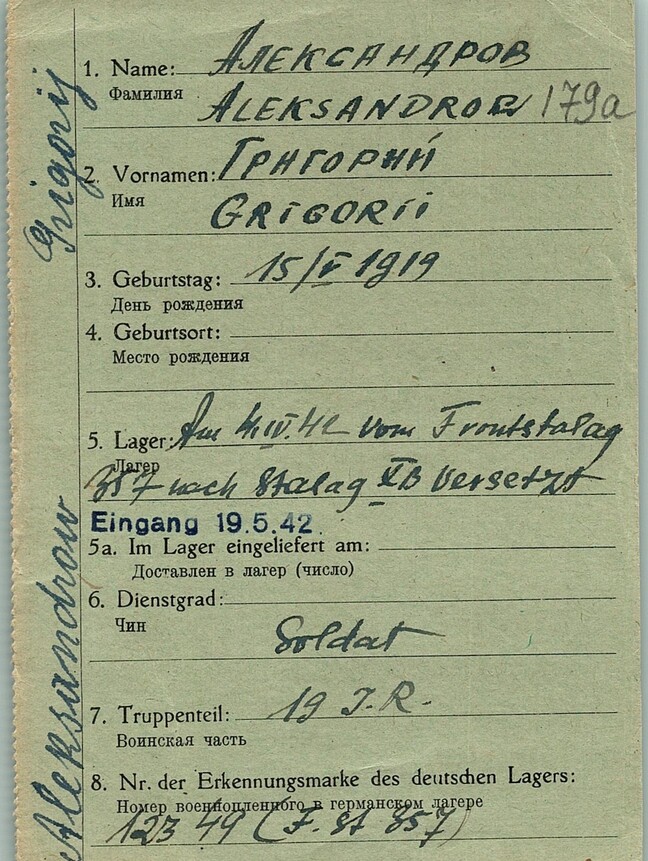 1. Name: АЛЕКСАНДРОВ
Фамилия
ALEKSANDROW 179a
2. Vornamen: ГРИГОРИЙ
Имя
GRIGORII
3. Geburtstag: 15/V 1919
День рождения
4. Geburtsort:
Место рождения
5. Lager: Am 4.IV.42 vom Frontstalag
Лагер
357 nach Stalag XB versetzt
Eingang 19.5.42.
5a. Im Lager eingeliefert am:
Доставлен в лагер (число)
6. Dienstgrad:
Чин
Soldat
7. Truppenteil: 19 I.R.
Воинская часть
8. Nr. der Erkennungsmarke des deutschen Lagers:
Номер военнопленного в германском лагере
12349 (F. St 357)
Aleksandrow Grigorij